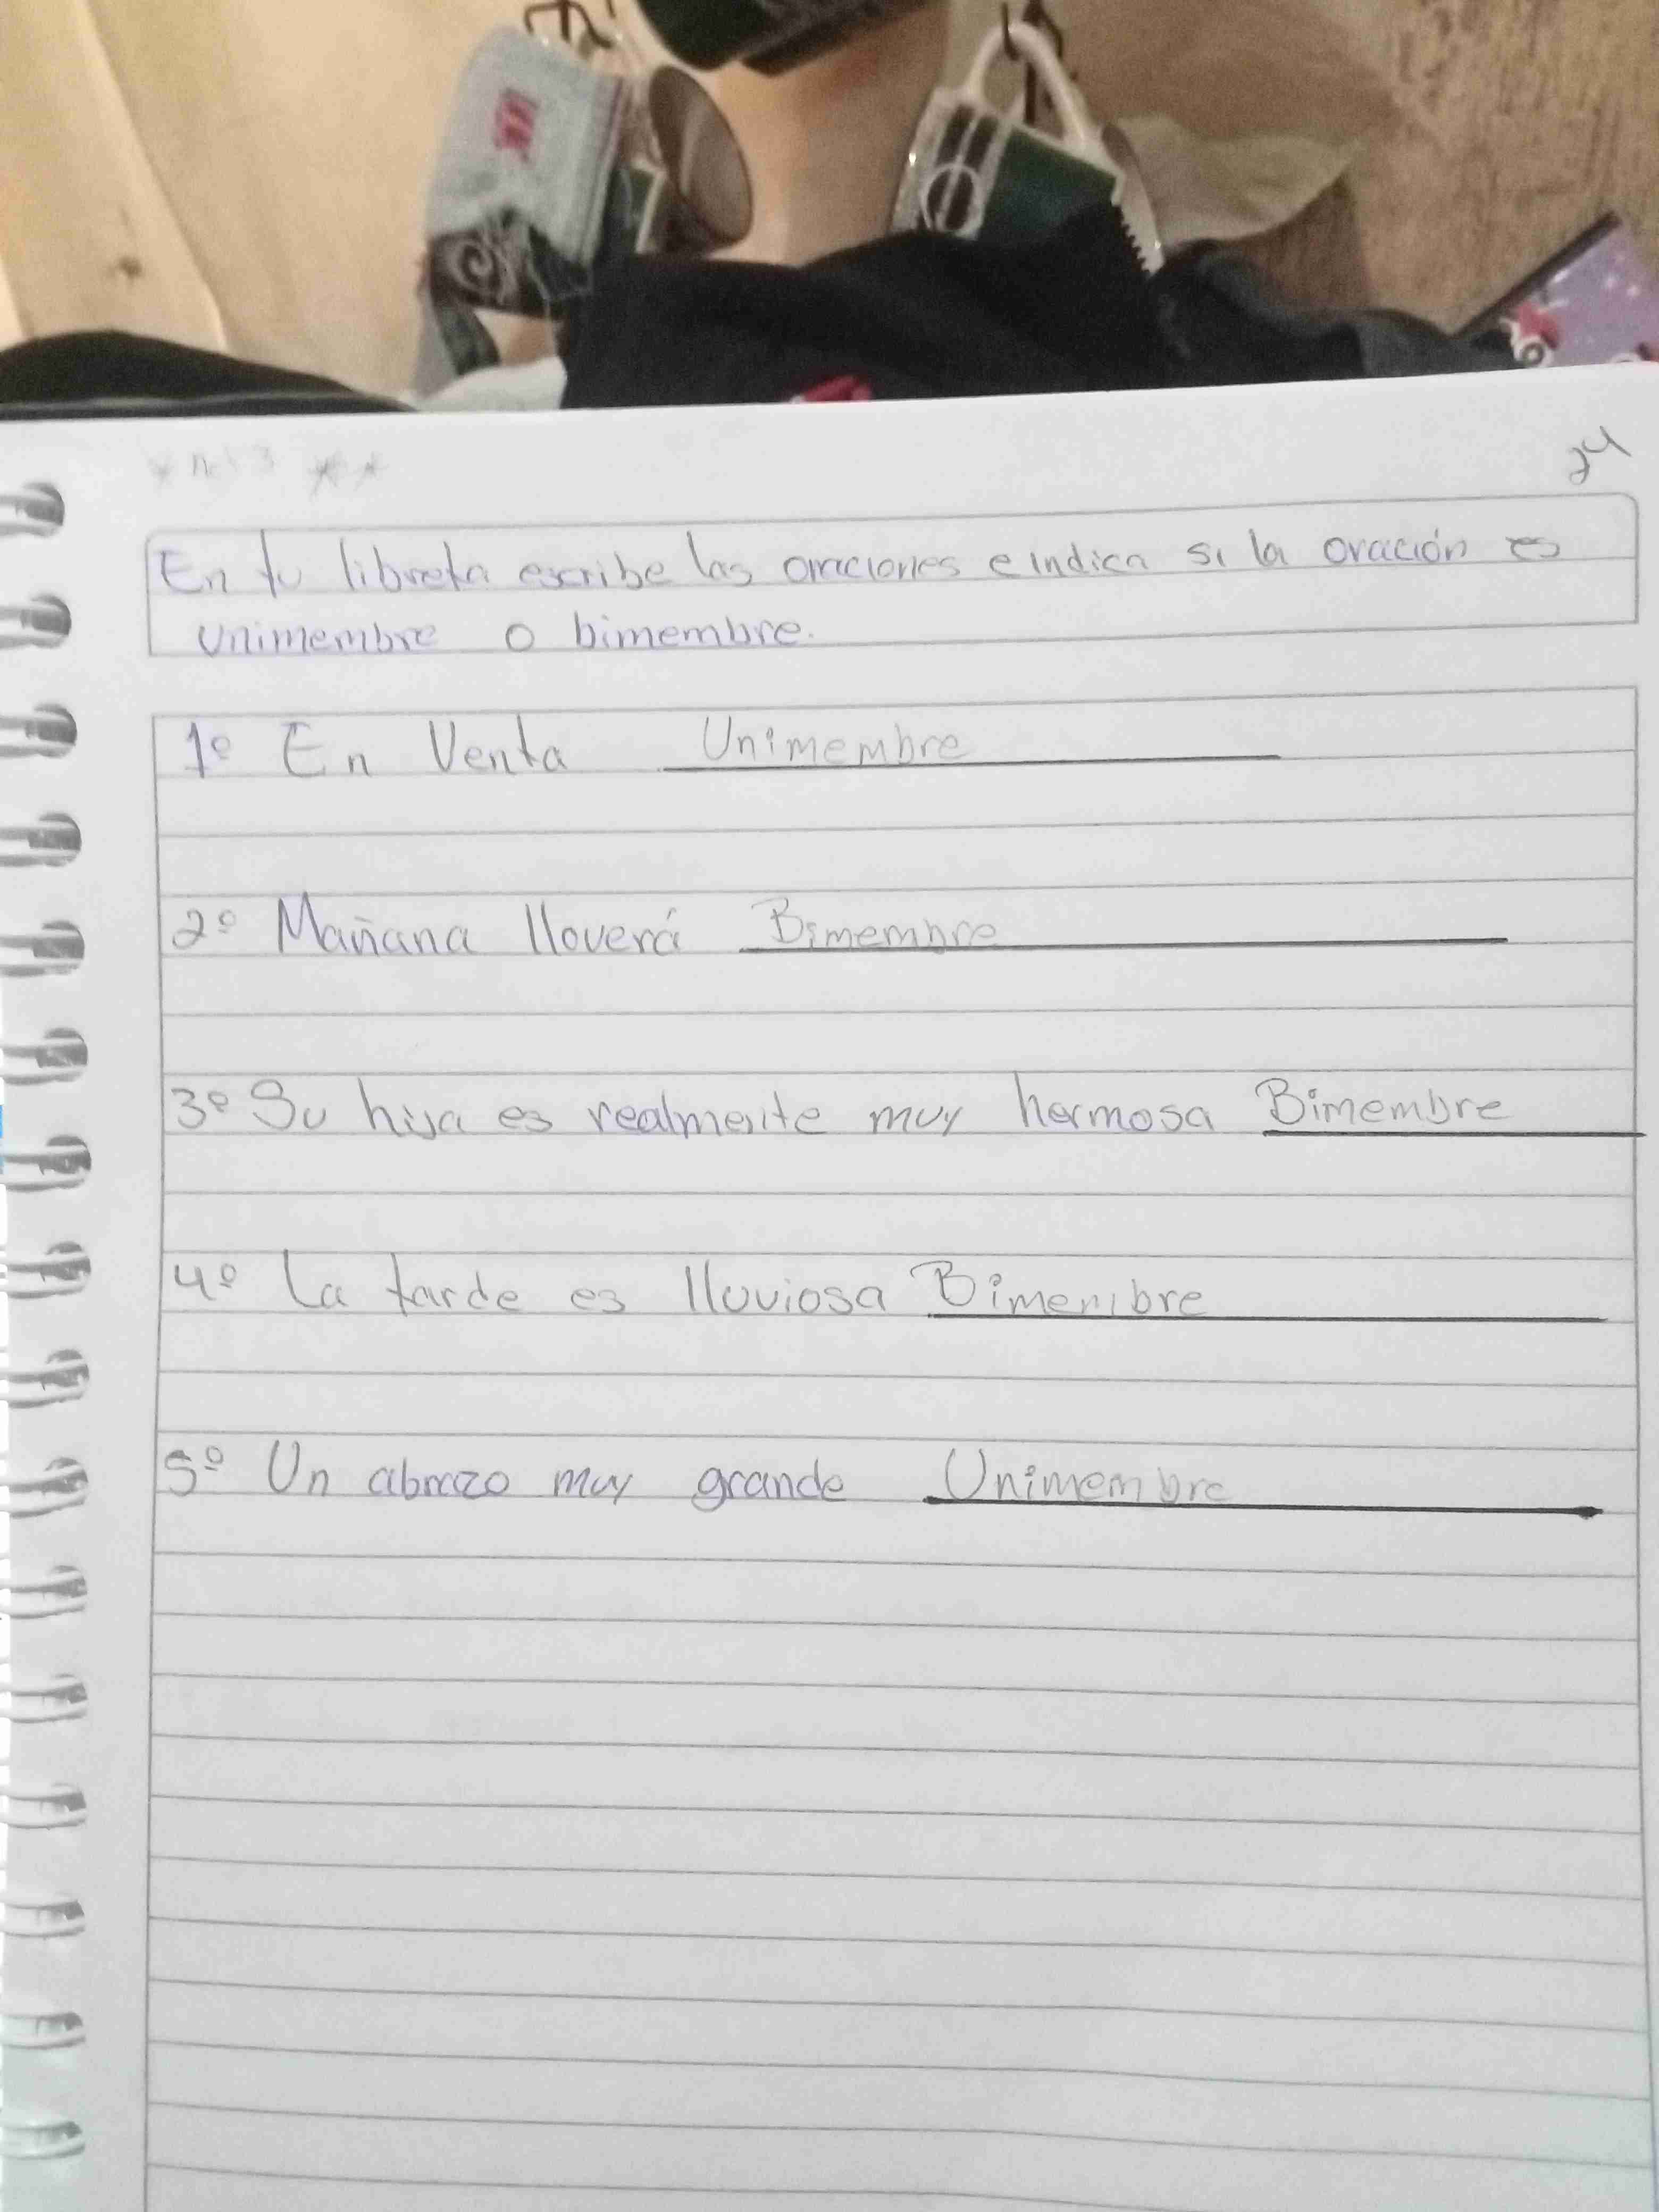 24
En tu libreta escribe las oraciones e indica si la oración es
unimembre o bimembre.
1º En Venta Unimembre
2º Mañana lloverá Bimembre
3º Su hija es realmente muy hermosa Bimembre
4º La tarde es lluviosa Bimembre
5º Un abrazo muy grande Unimembre